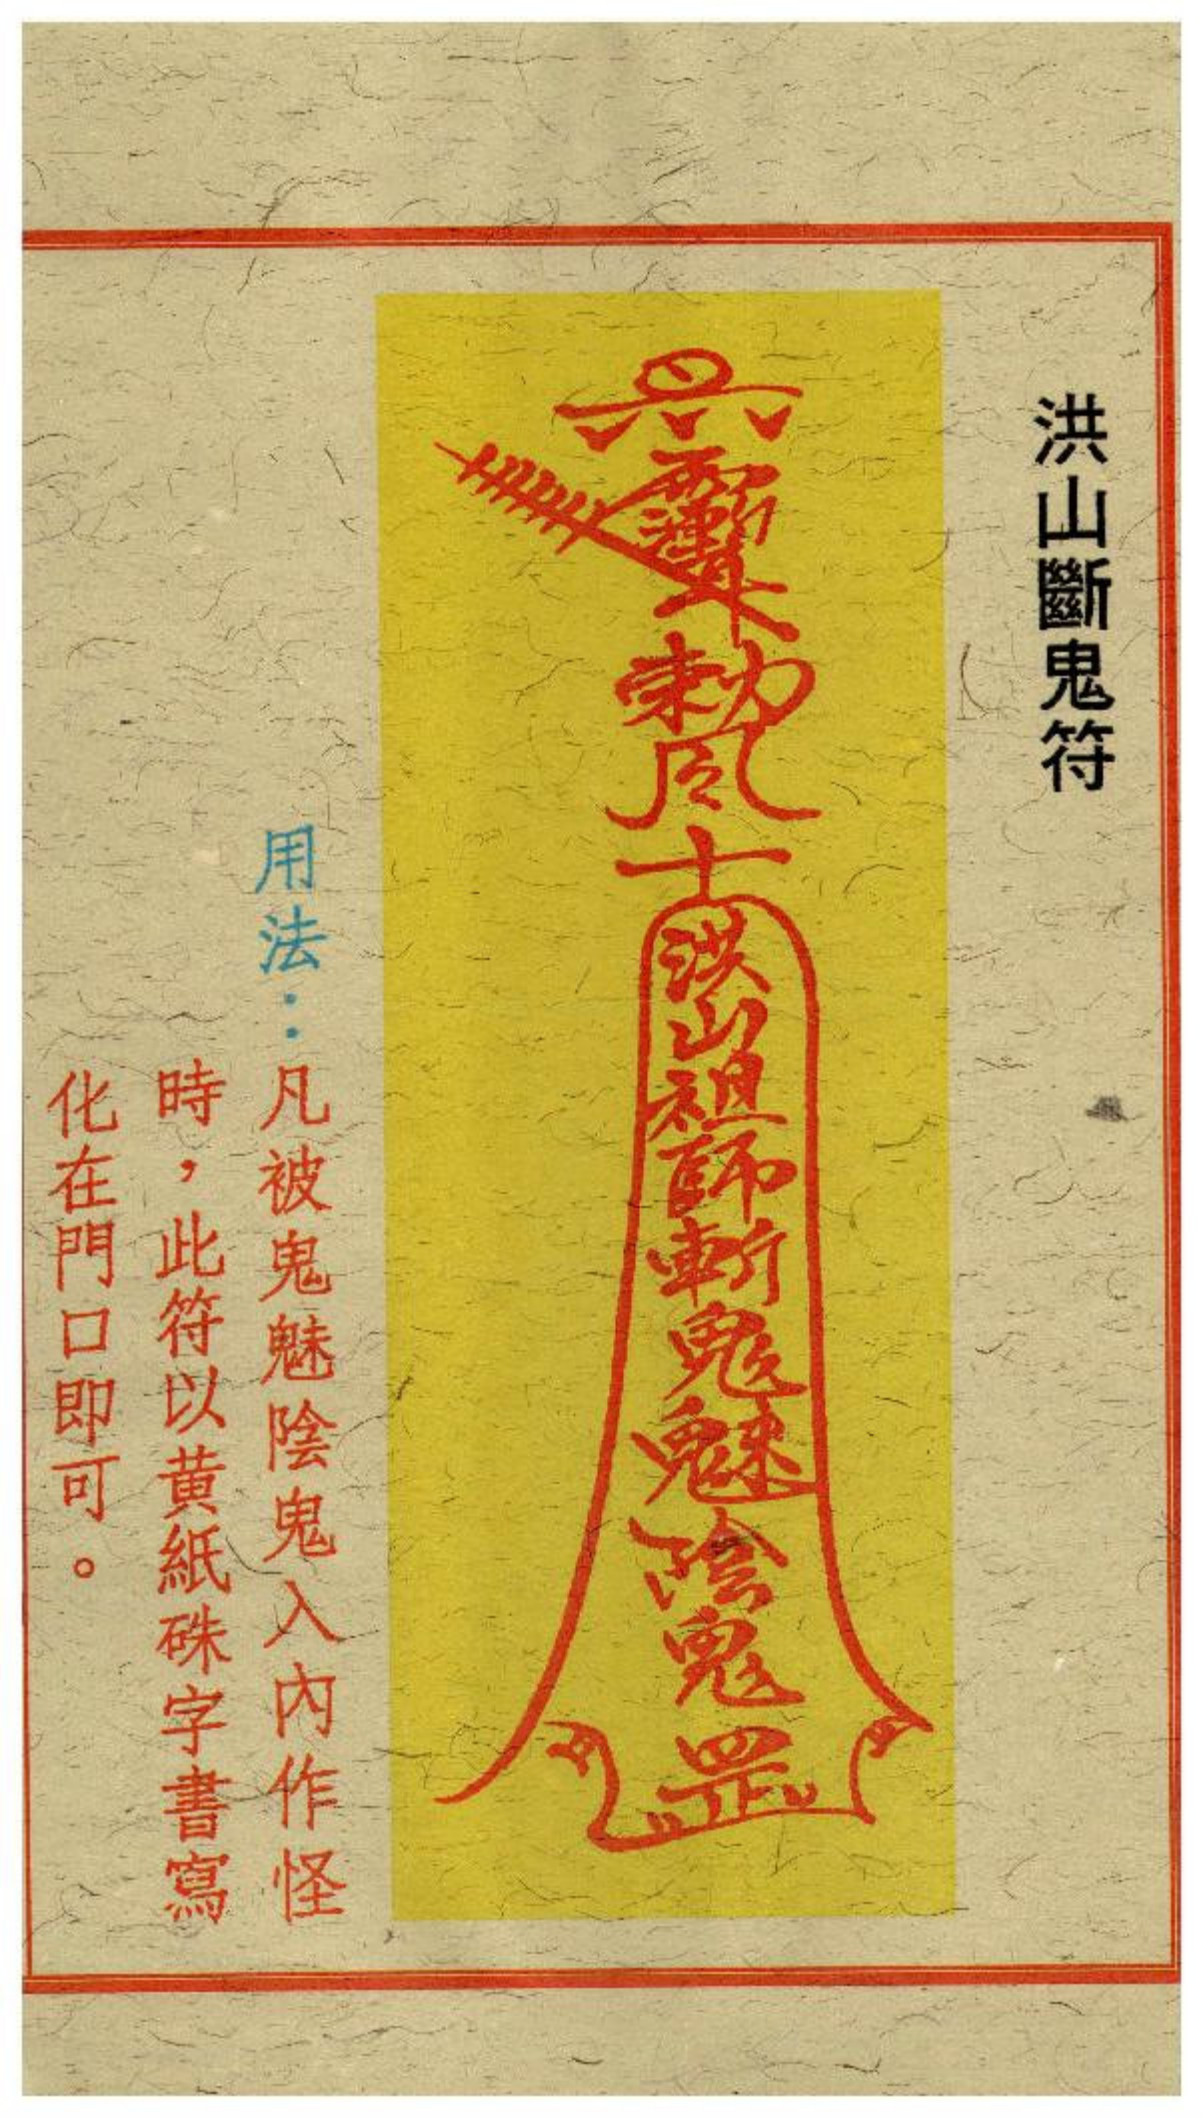 洪山斷鬼符
勅令
洪山祖師斬鬼魅陰鬼罡
用法：凡被鬼魅陰鬼入內作怪
時，此符以黄紙硃字書寫
化在門口即可。